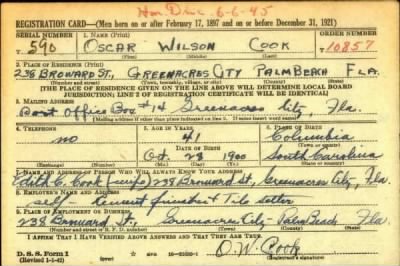 Hon Disc. 6-6-45
REGISTRATION CARD—(Men born on or after February 17, 1897 and on or before December 31, 1921)
SERIAL NUMBER 1. NAME (Print) ORDER NUMBER
590 OSCAR WILSON COOK 10857
(First) (Middle) (Last)
2. PLACE OF RESIDENCE (Print)
238 BROWARD ST., GREENACRES CITY PALM BEACH FLA.
(Number and street) (Town, township, village, or city) (County) (State)
[THE PLACE OF RESIDENCE GIVEN ON THE LINE ABOVE WILL DETERMINE LOCAL BOARD
JURISDICTION; LINE 2 OF REGISTRATION CERTIFICATE WILL BE IDENTICAL]
3. MAILING ADDRESS
Post Office Box #14 Greenacres City, Fla.
[Mailing address if other than place indicated on line 2. If same, insert word same]
4. TELEPHONE 5. AGE IN YEARS 6. PLACE OF BIRTH
no 41 Columbia
DATE OF BIRTH (Town or county)
Oct. 28 1900 South Carolina
(Exchange) (Number) (Mo.) (Day) (Yr.) (State or country)
7. NAME AND ADDRESS OF PERSON WHO WILL ALWAYS KNOW YOUR ADDRESS
Edith C. Cook (wife) 238 Broward St, Greenacres City, Fla.
8. EMPLOYER'S NAME AND ADDRESS
self - Cement finisher & Tile setter
9. PLACE OF EMPLOYMENT OR BUSINESS
238 Broward St., Greenacres City - Palm Beach Fla.
(Number and street or R. F. D. number) (Town) (County) (State)
I AFFIRM THAT I HAVE VERIFIED ABOVE ANSWERS AND THAT THEY ARE TRUE.
O. W. Cook
D. S. S. Form 1
(Revised 1-1-42) (over) (Registrant's signature)